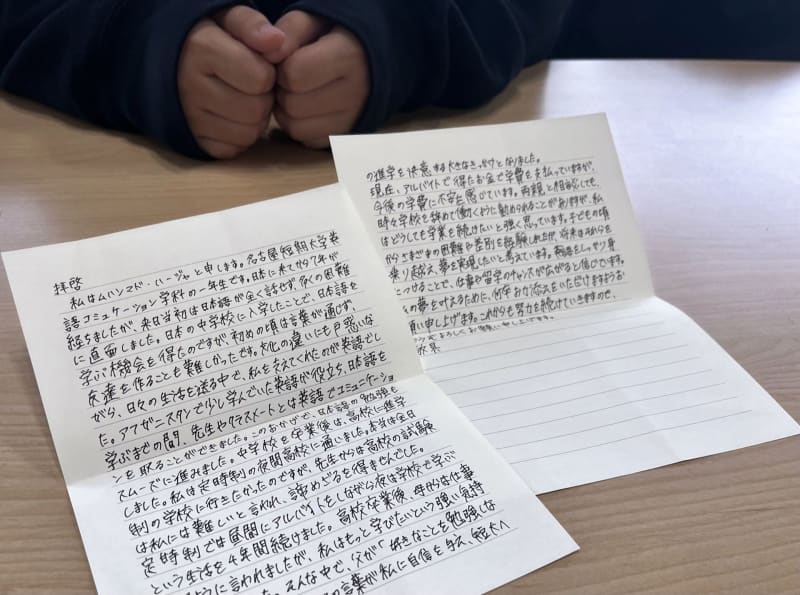 拝啓
私はムハンマド・ハージャと申します。名古屋短期大学英
語コミュケーション学科の一年生です。日本に来てから7年が
経ちましたが、来日当初は日本語が全く話せず、多くの困難
に直面しました。日本の中学校に入学したことで、日本語を
学ぶ機会を得たのですが、初めの頃は言葉が通じず、
友達を作ることも難しかったです。文化の違いにも戸惑いな
がら、日々の生活を送る中で、私を支えてくれたのが英語でし
た。アフガニスタンで少し学んでいた英語が役立ち、日本語を
学ぶまでの間、先生やクラスメートとは英語でコミュニケーショ
ンを取ることができました。このおかげで、日本語の勉強も
スムーズに進みました。中学校を卒業後は、高校に進学
しました。私は定時制の夜間高校に通いました。本当は全日
制の学校に行きたかったのですが、先生からは高校の試験
は私には難しいと言われ、諦めざるを得ませんでした。
定時制では昼間にアルバイトをしながら夜は学校で学ぶ
という生活を4年間続けました。高校卒業後、母からは仕事
ように言われましたが、私はもっと学びたいという強い気持
た。そんな中で、父が「好きなことを勉強しな
の言葉が私に自信を与え、短大へ
の進学を決意する大きなきっかけとなりました。
現在、アルバイトで得たお金で学費を支払っていますが、
今後の学費に不安を感じています。両親と相談しても、
時々学校を辞めて働くように勧められることがありますが、私
はどうしても学業を続けたいと強く思っています。子どもの頃
からさまざまな困難や差別を経験しましたが、将来はそれらを
乗り越え、夢を実現したいと考えています。英語をしっかり身
につけることで、仕事や留学のチャンスが広がると信じています。
の夢を叶えるために、何卒お力添えをいただけますようお
願い申し上げます。これからも努力を続けていきますので、
どうぞよろしくお願い申し上げます。